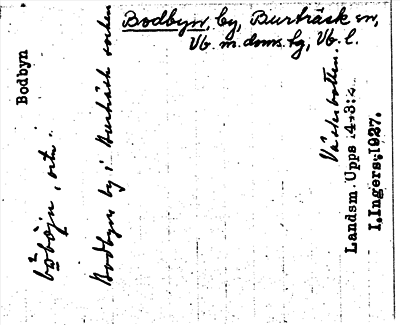 Bodbyn, by, Burträsk sn,
Vb. m. doms. hg, Vb. l.
Bodbyn
Bodbyn by i Burträsk socken
Västerbotten
Landsm. Upps 143:2
I. Ingers, 1927.